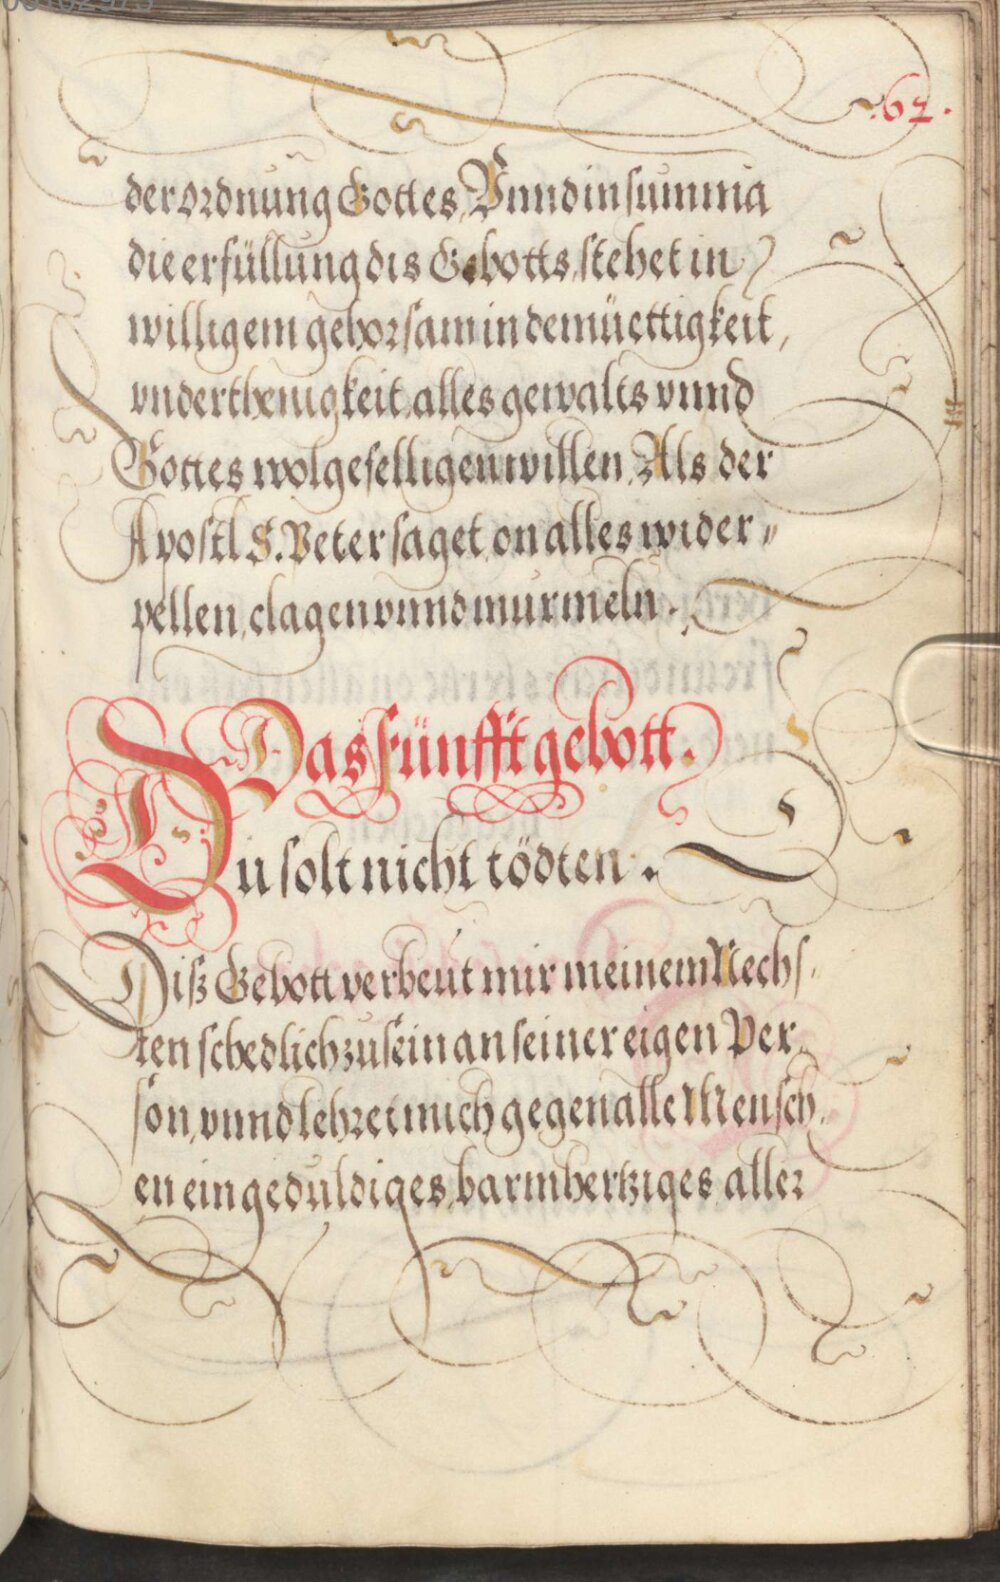 .62.
der ordnung Gottes, Vnnd in summa
die erfüllung dis Gebotts, stehet in
willigem gehorsam in demüettigkeit,
vnderthenigkeit, alles gewalts vnnd
Gottes wolgefelligen willen, Als der
Apostl S. Peter saget, on alles wider„
pellen, clagen vnnd murmeln.
Das fünfft gebott.
Du solt nicht tödten.
Diß Gebott verbeut mir meinem Nechs,
ten schedlich zu sein an seiner eigen Per,
son, vnnd lehret mich gegen alle Mensch,
en ein geduldiges, barmhertziges aller